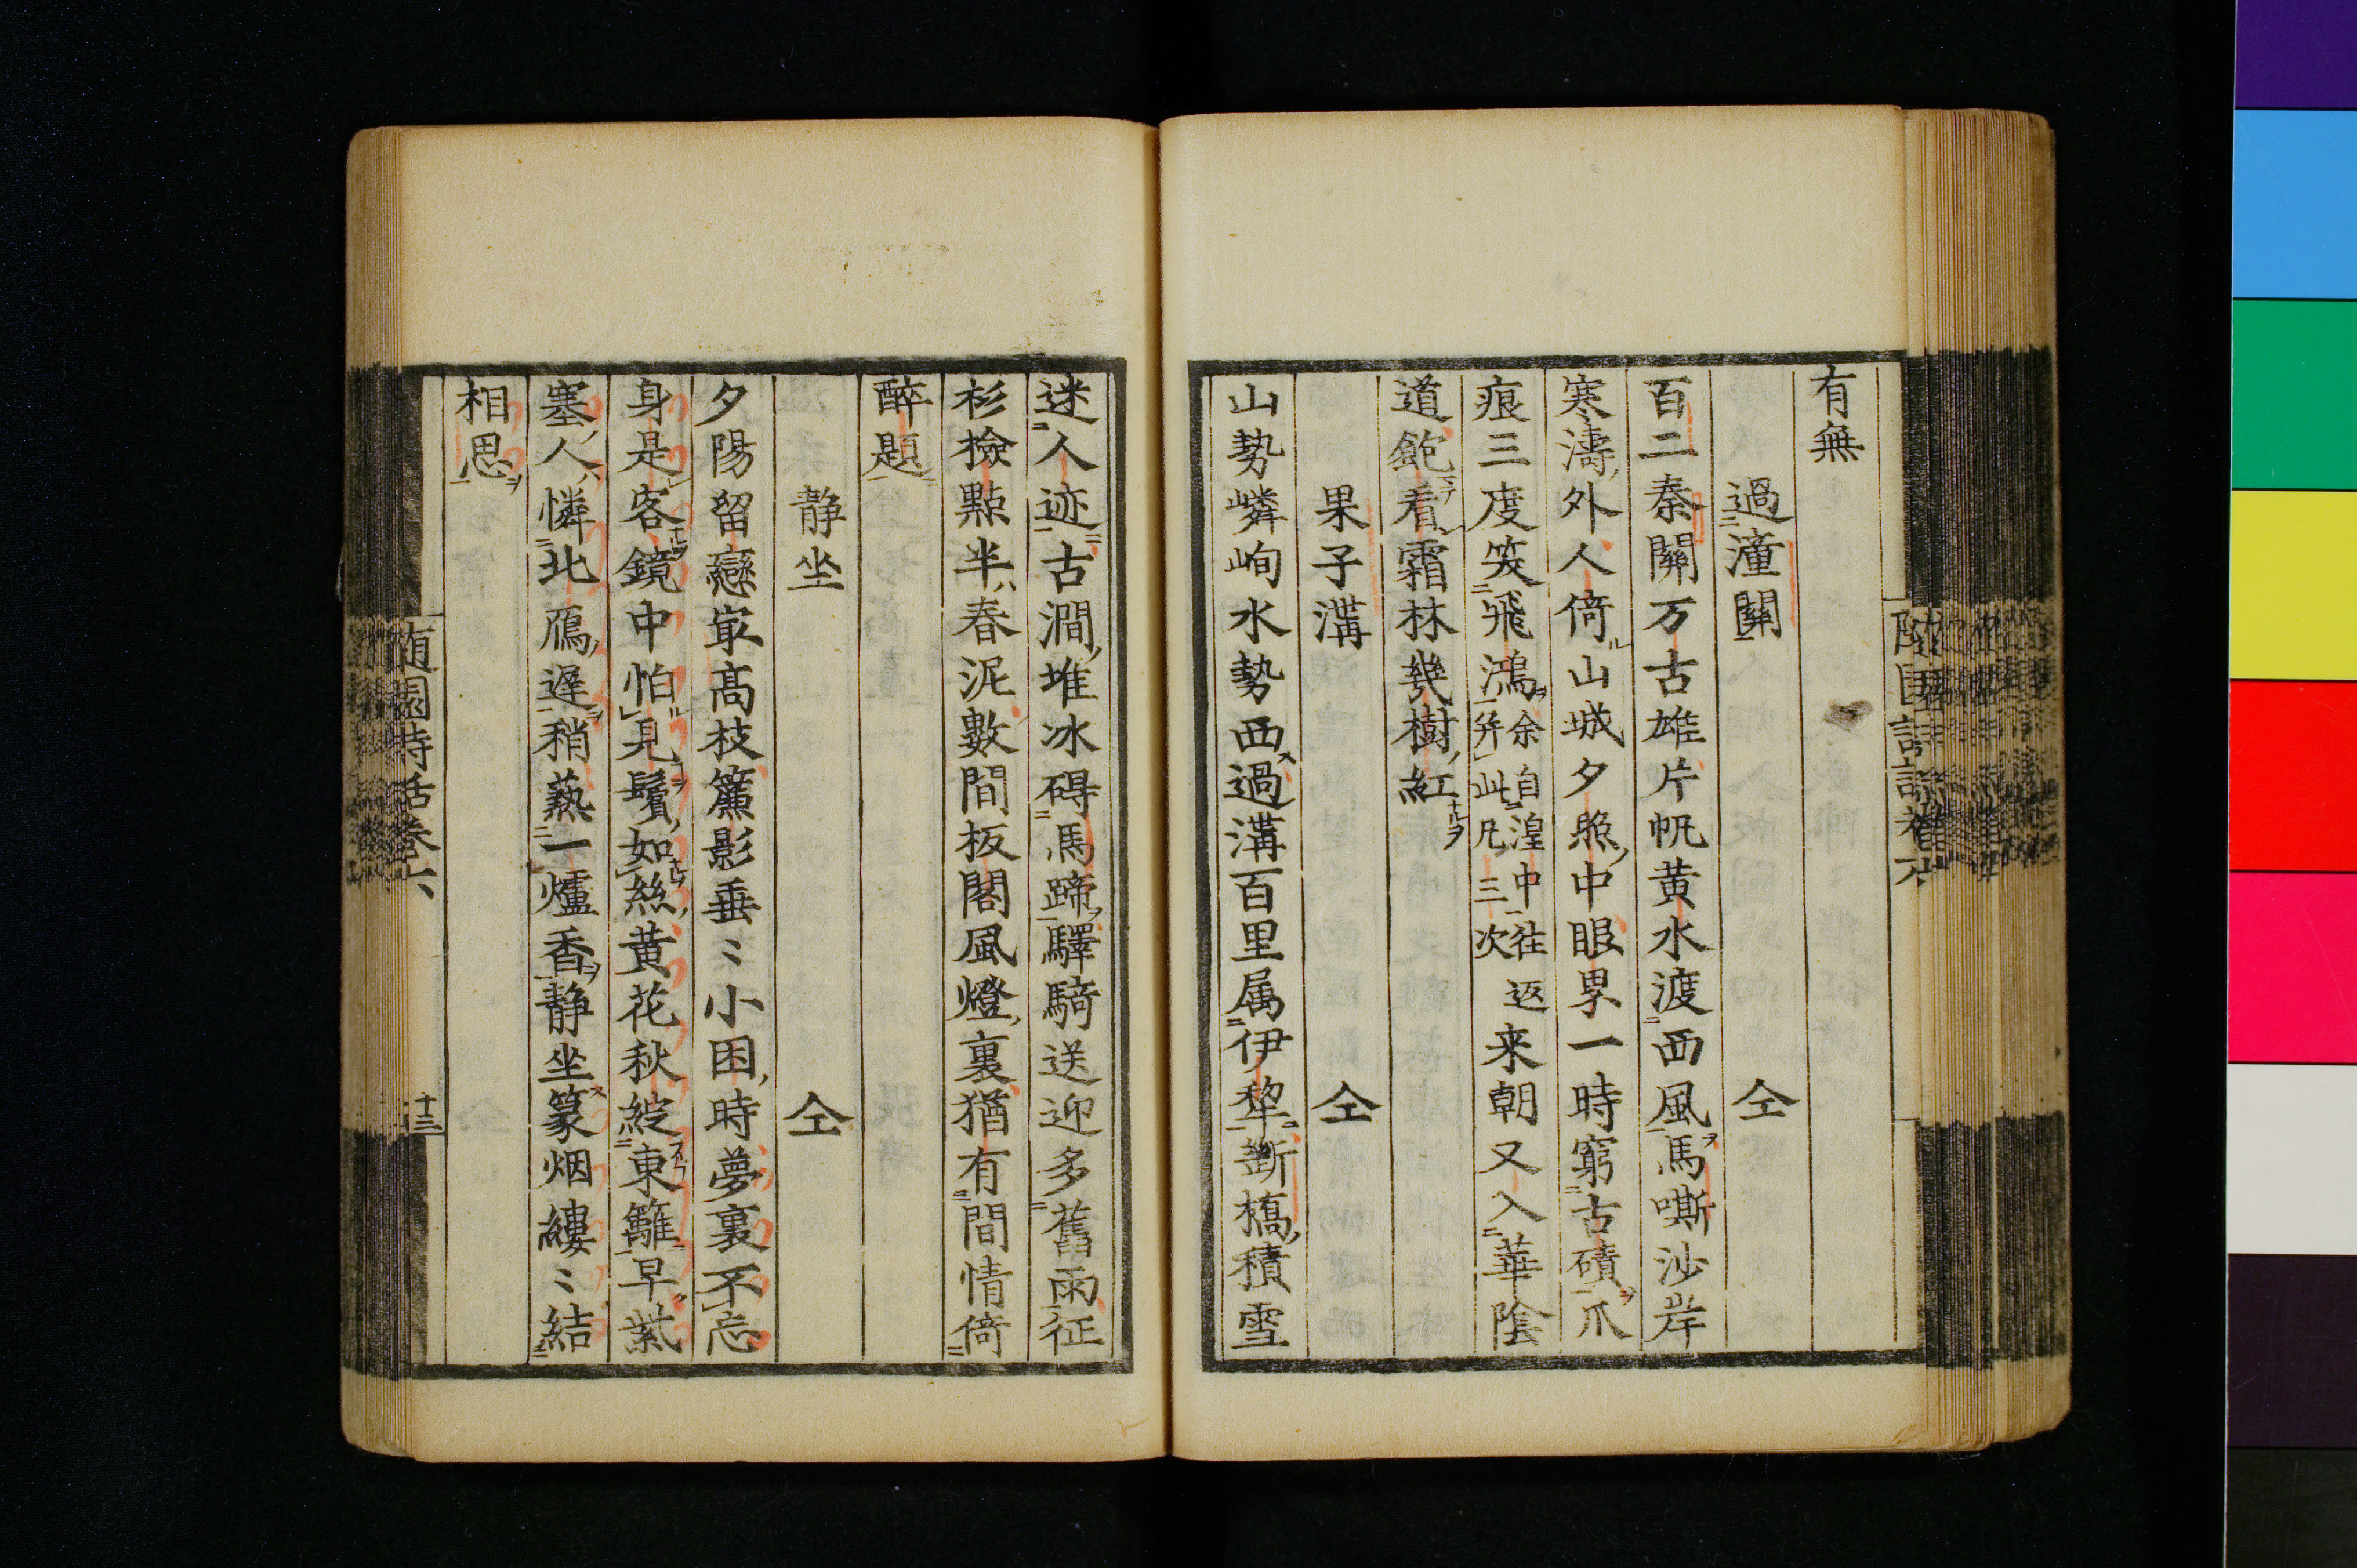 有無
過潼關　仝
百二秦關万古雄片帆黄水渡西風馬嘶沙岸
寒濤外人倚山城夕照中眼界一時窮古磧爪
痕三度笑飛鴻余自湟中往返弁此凡三次来朝又入華陰
道飽看霜林幾樹紅
果子溝　仝
山勢嶙峋水勢西過溝百里属伊犂断橋積雪
迷人迹古澗堆冰碍馬蹄驛騎送迎多舊雨征
杉撿點半春泥數間板閣風燈裏猶有間情倚
醉題
静坐　仝
夕陽留戀冣高枝簾影垂〻小困時夢裏不忘
身是客鏡中怕見鬢如絲黄花秋綻東籬早紫
塞人憐北鴈遅稍爇一爐香静坐篆烟縷〻結
相思
随園詩話巻六
十三